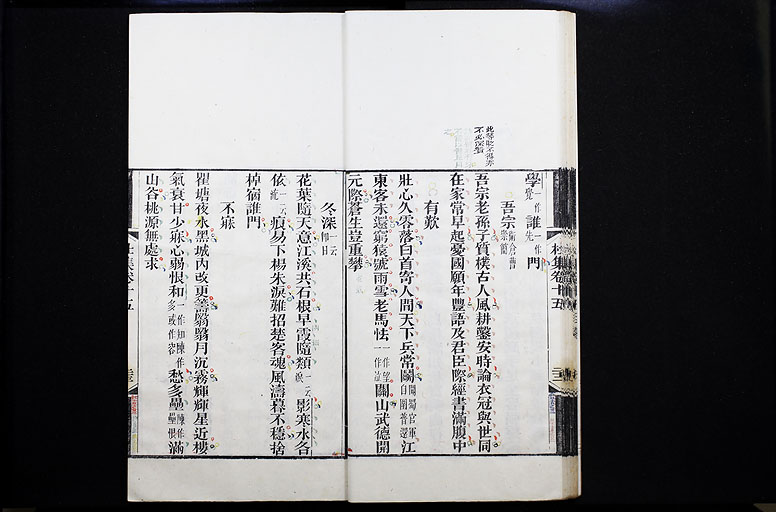 學一作覺誰一作先門
吾宗衛倉曹崇簡
吾宗老孫子質樸古人風耕鑿安時論衣冠與世同
在家常早起憂國願年豐語及君臣際經書滿腹中
有歎
壯心久零落白首寄人間天下兵常鬭江
東客未還窮猿號雨雪老馬怯一作望關山武德開
元際蒼生豈重攀
冬深一云即日
花葉隨天意江溪共石根早霞隨類影寒水各
依一云流痕易下楊朱淚難招楚客魂風濤暮不穩捨
棹宿誰門
不寐
瞿塘夜水黑城內改更籌翳翳月沉霧輝輝星近樓
氣衰甘少寐心弱恨和愁多壘滿
山谷桃源無處求
杜集卷十五